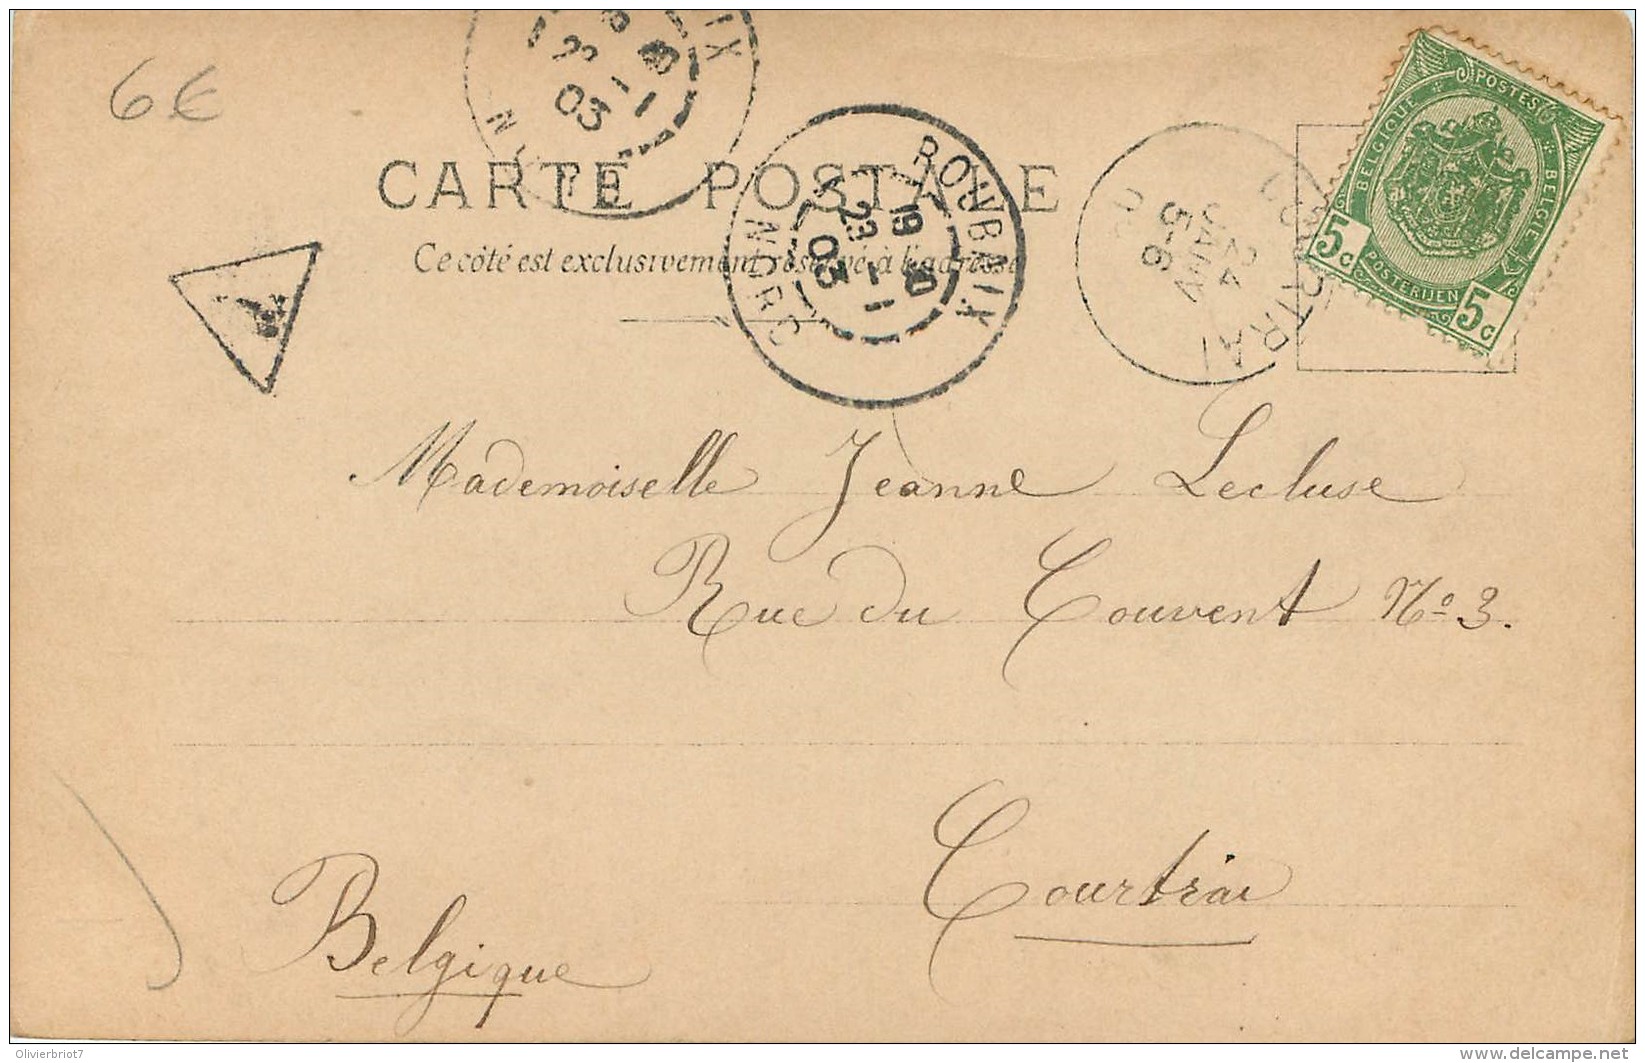 6€
IX
03
N
CARTE POSTALE
Ce côté est exclusivement réservé à l'adresse
ROUBAIX
19
23 - 1
03
NORD
COURTRAI
5-6
JANV
24
BELGIQUE POSTES BELGIE POSTERIJEN
5c 5c
T
Mademoiselle Jeanne Lecluse
Rue du Couvent No 3.
Courtrai
Belgique
Olivierbriot7
delcampe.net